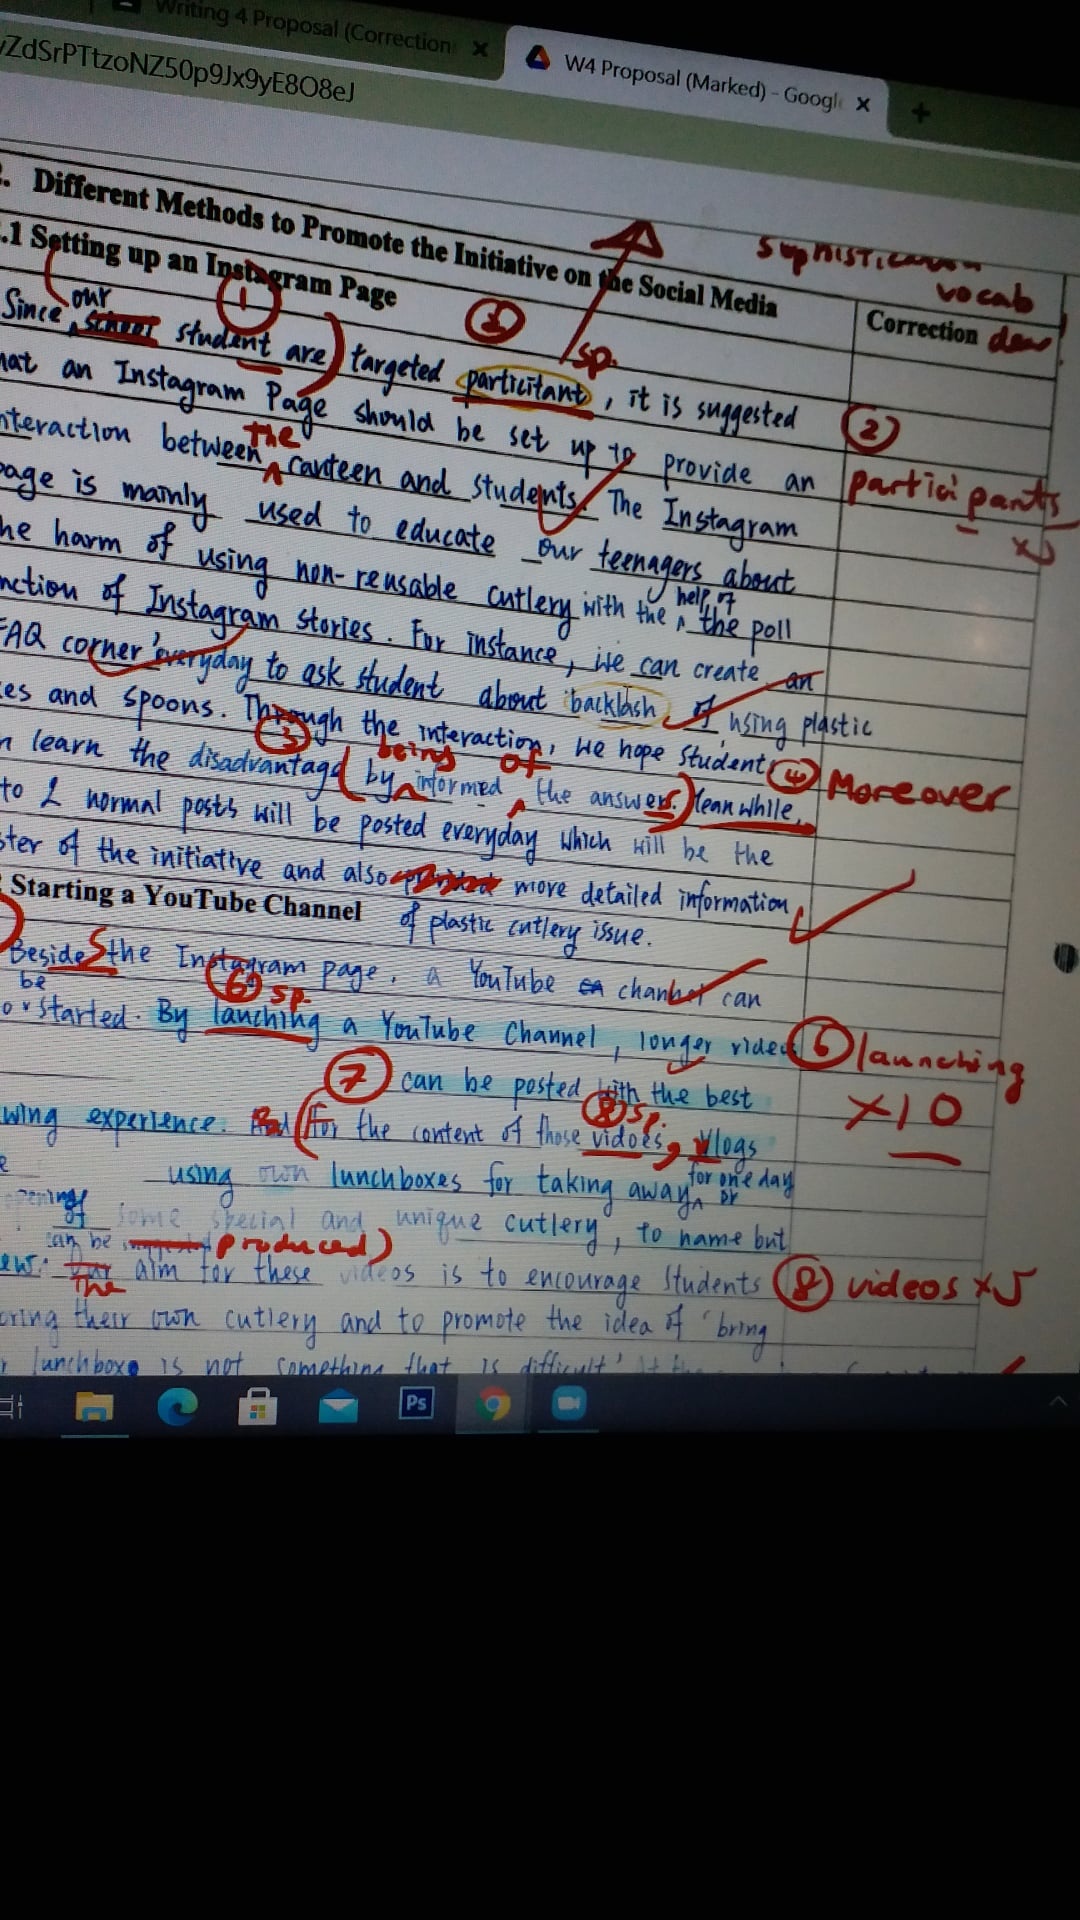 Writing 4 Proposal (Correction
W4 Proposal (Marked) - Googl
ZdSrPTtzoNZ50p9Jx9yE8O8eJ
sp.
vocab
. Different Methods to Promote the Initiative on the Social Media
.1 Setting up an Instagram Page
Correction
1
our
Since student are) targeted particitant, it is suggested
2
hat an Instagram Page should be set up to provide an
participants
x5
the
nteraction between canteen and students. The Instagram
page is mainly used to educate our teenagers about
he harm of using non-reusable cutlery with the help of the poll
nction of Instagram Stories. For instance, we can create an
FAQ corner' everyday to ask student about backlash of using plastic
es and spoons. Through the interaction, we hope student
3
being of
4 Moreover
n learn the disadvantage (by informed the answers.) Meanwhile,
to 2 normal posts will be posted everyday which will be the
ster of the initiative and also more detailed information
of plastic cutlery issue.
Starting a YouTube Channel
Besides the Instagram page, a YouTube channel can
be
6 sp.
started. By lanching a YouTube Channel, longer video
6 launching
x10
7
can be posted with the best
8 sp.
wing experience. (For the content of those vidoes, Vlogs
using own lunchboxes for taking away for one day or
opening of some special and unique cutlery, to name but
can be produced)
ew. The aim for these videos is to encourage students
8 videos x5
bring their own cutlery and to promote the idea of 'bring
lunchbox is not something that is difficult'
Ps